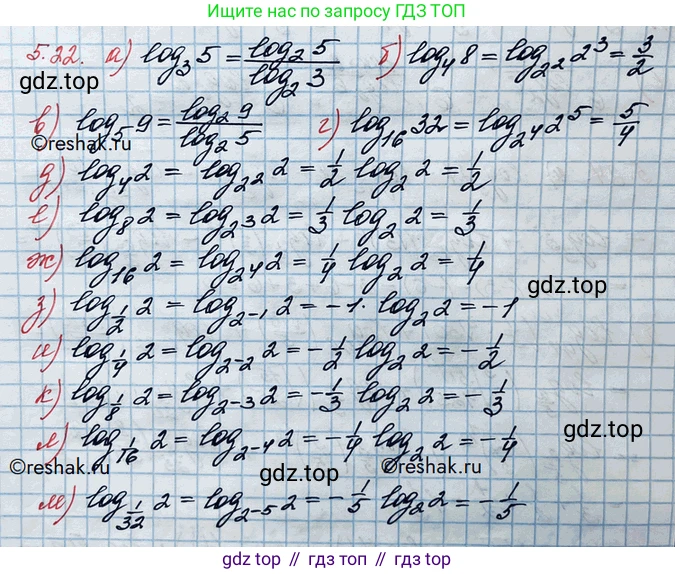 Ищите ответы по запросу ГДЗ ТОП
5.22. а) log₃5 = log₂5 / log₂3 б) log₄8 = log₂²2³ = 3/2
gdz.top
в) log₅9 = log₂9 / log₂5 г) log₁₆32 = log₂⁴2⁵ = 5/4
©reshak.ru gdz.top
д) log₄2 = log₂²2 = 1/2 log₂2 = 1/2
е) log₈2 = log₂³2 = 1/3 log₂2 = 1/3
ж) log₁₆2 = log₂⁴2 = 1/4 log₂2 = 1/4
gdz.top
з) log_(1/2) 2 = log₂⁻¹2 = -1·log₂2 = -1
и) log_(1/4) 2 = log₂⁻²2 = -1/2 log₂2 = -1/2
к) log_(1/8) 2 = log₂⁻³2 = -1/3 log₂2 = -1/3
л) log_(1/16) 2 = log₂⁻⁴2 = -1/4 log₂2 = -1/4
©reshak.ru gdz.top ©reshak.ru
м) log_(1/32) 2 = log₂⁻⁵2 = -1/5 log₂2 = -1/5
gdz.top // гдз топ // gdz.top